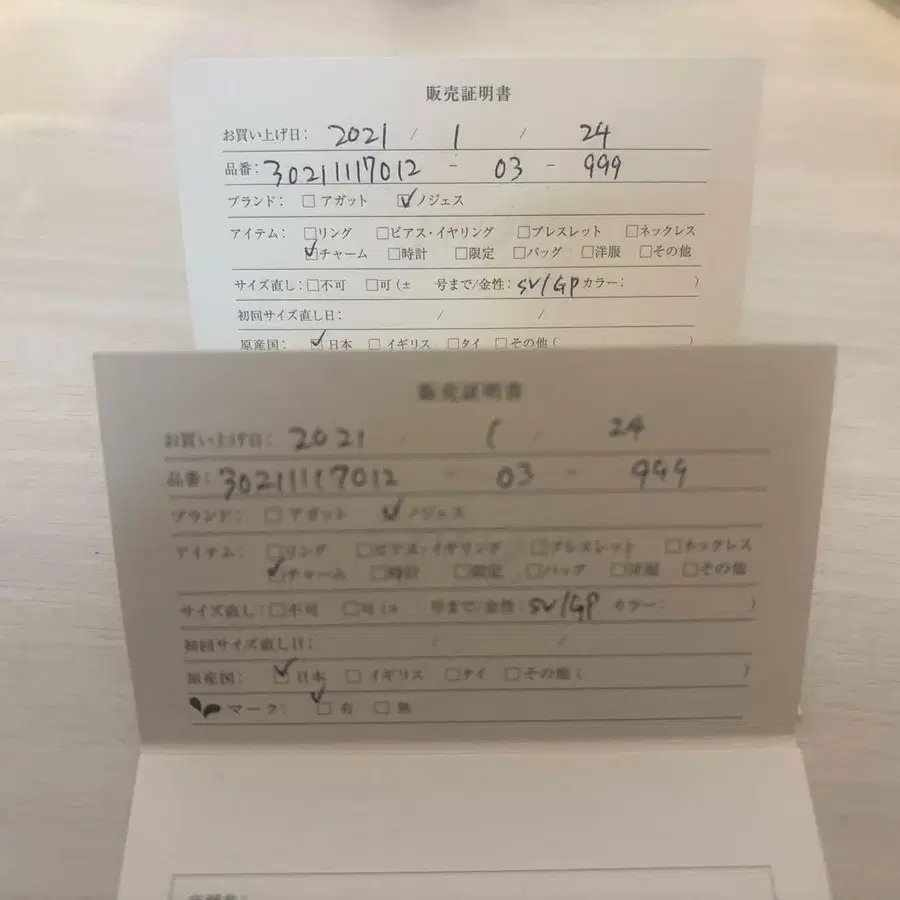 販売証明書
お買い上げ日: 2021 / 1 / 24
品番: 30211117012 - 03 - 999
ブランド: □ アガット ☑ ノジェス
アイテム: □リング □ピアス・イヤリング □ブレスレット □ネックレス
☑チャーム □時計 □限定 □バッグ □洋服 □その他
サイズ直し: □不可 □可(± 号まで/金性: SV/GP カラー: )
初回サイズ直し日: / /
原産国: ☑日本 □イギリス □タイ □その他(
販売証明書
お買い上げ日: 2021 / 1 / 24
品番: 30211117012 - 03 - 999
ブランド: □ アガット ☑ ノジェス
アイテム: □リング □ピアス・イヤリング □ブレスレット □ネックレス
☑チャーム □時計 □限定 □バッグ □洋服 □その他
サイズ直し: □不可 □可(± 号まで/金性: SV/GP カラー: )
初回サイズ直し日: / /
原産国: ☑日本 □イギリス □タイ □その他( )
マーク: ☑有 □無